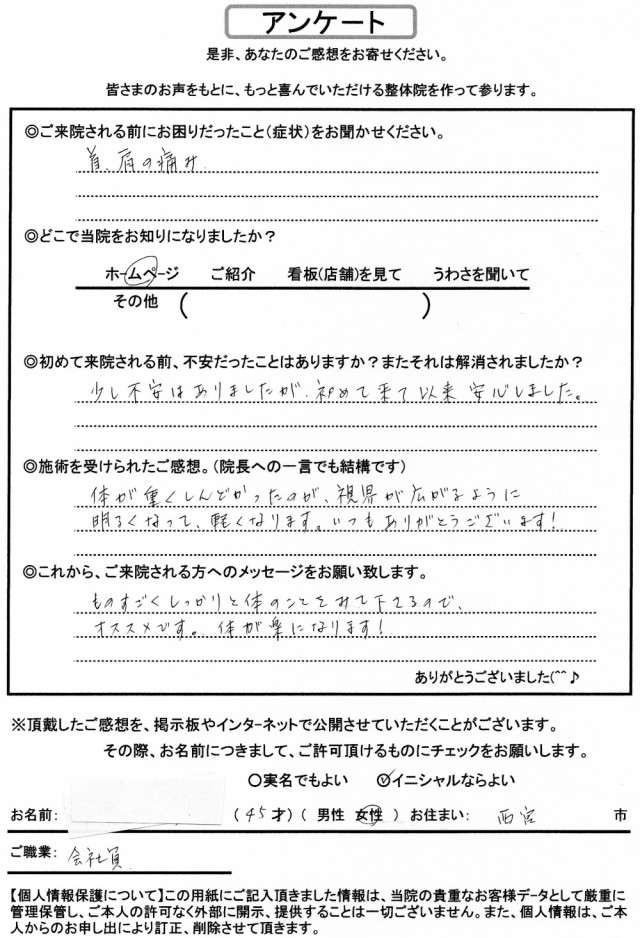 アンケート
是非、あなたのご感想をお寄せください。
皆さまのお声をもとに、もっと喜んでいただける整体院を作って参ります。
◎ご来院される前にお困りだったこと(症状)をお聞かせください。
首、肩の痛み
◎どこで当院をお知りになりましたか？
ホームページ　ご紹介　看板(店舗)を見て　うわさを聞いて
その他 (　)
◎初めて来院される前、不安だったことはありますか？またそれは解消されましたか？
少し不安はありましたが、初めて来て以来 安心しました。
◎施術を受けられたご感想。(院長への一言でも結構です)
体が重くしんどかったのが、視界が広がるように
明るくなって、軽くなります。いつもありがとうございます！
◎これから、ご来院される方へのメッセージをお願い致します。
ものすごくしっかりと体のことをみて下さるので、
オススメです。体が楽になります！
ありがとうございました(^^♪
※頂戴したご感想を、掲示板やインターネットで公開させていただくことがございます。
その際、お名前につきまして、ご許可頂けるものにチェックをお願いします。
〇実名でもよい　〇イニシャルならよい
お名前：　(45才)(男性 女性) お住まい：　西宮　市
ご職業：会社員
【個人情報保護について】この用紙にご記入頂きました情報は、当院の貴重なお客様データとして厳重に
管理保管し、ご本人の許可なく外部に開示、提供することは一切ございません。また、個人情報は、ご本
人からのお申し出により訂正、削除させて頂きます。